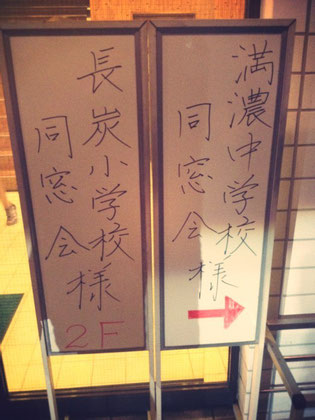 満濃中学校
同窓会様
長炭小学校様
同窓会
2F